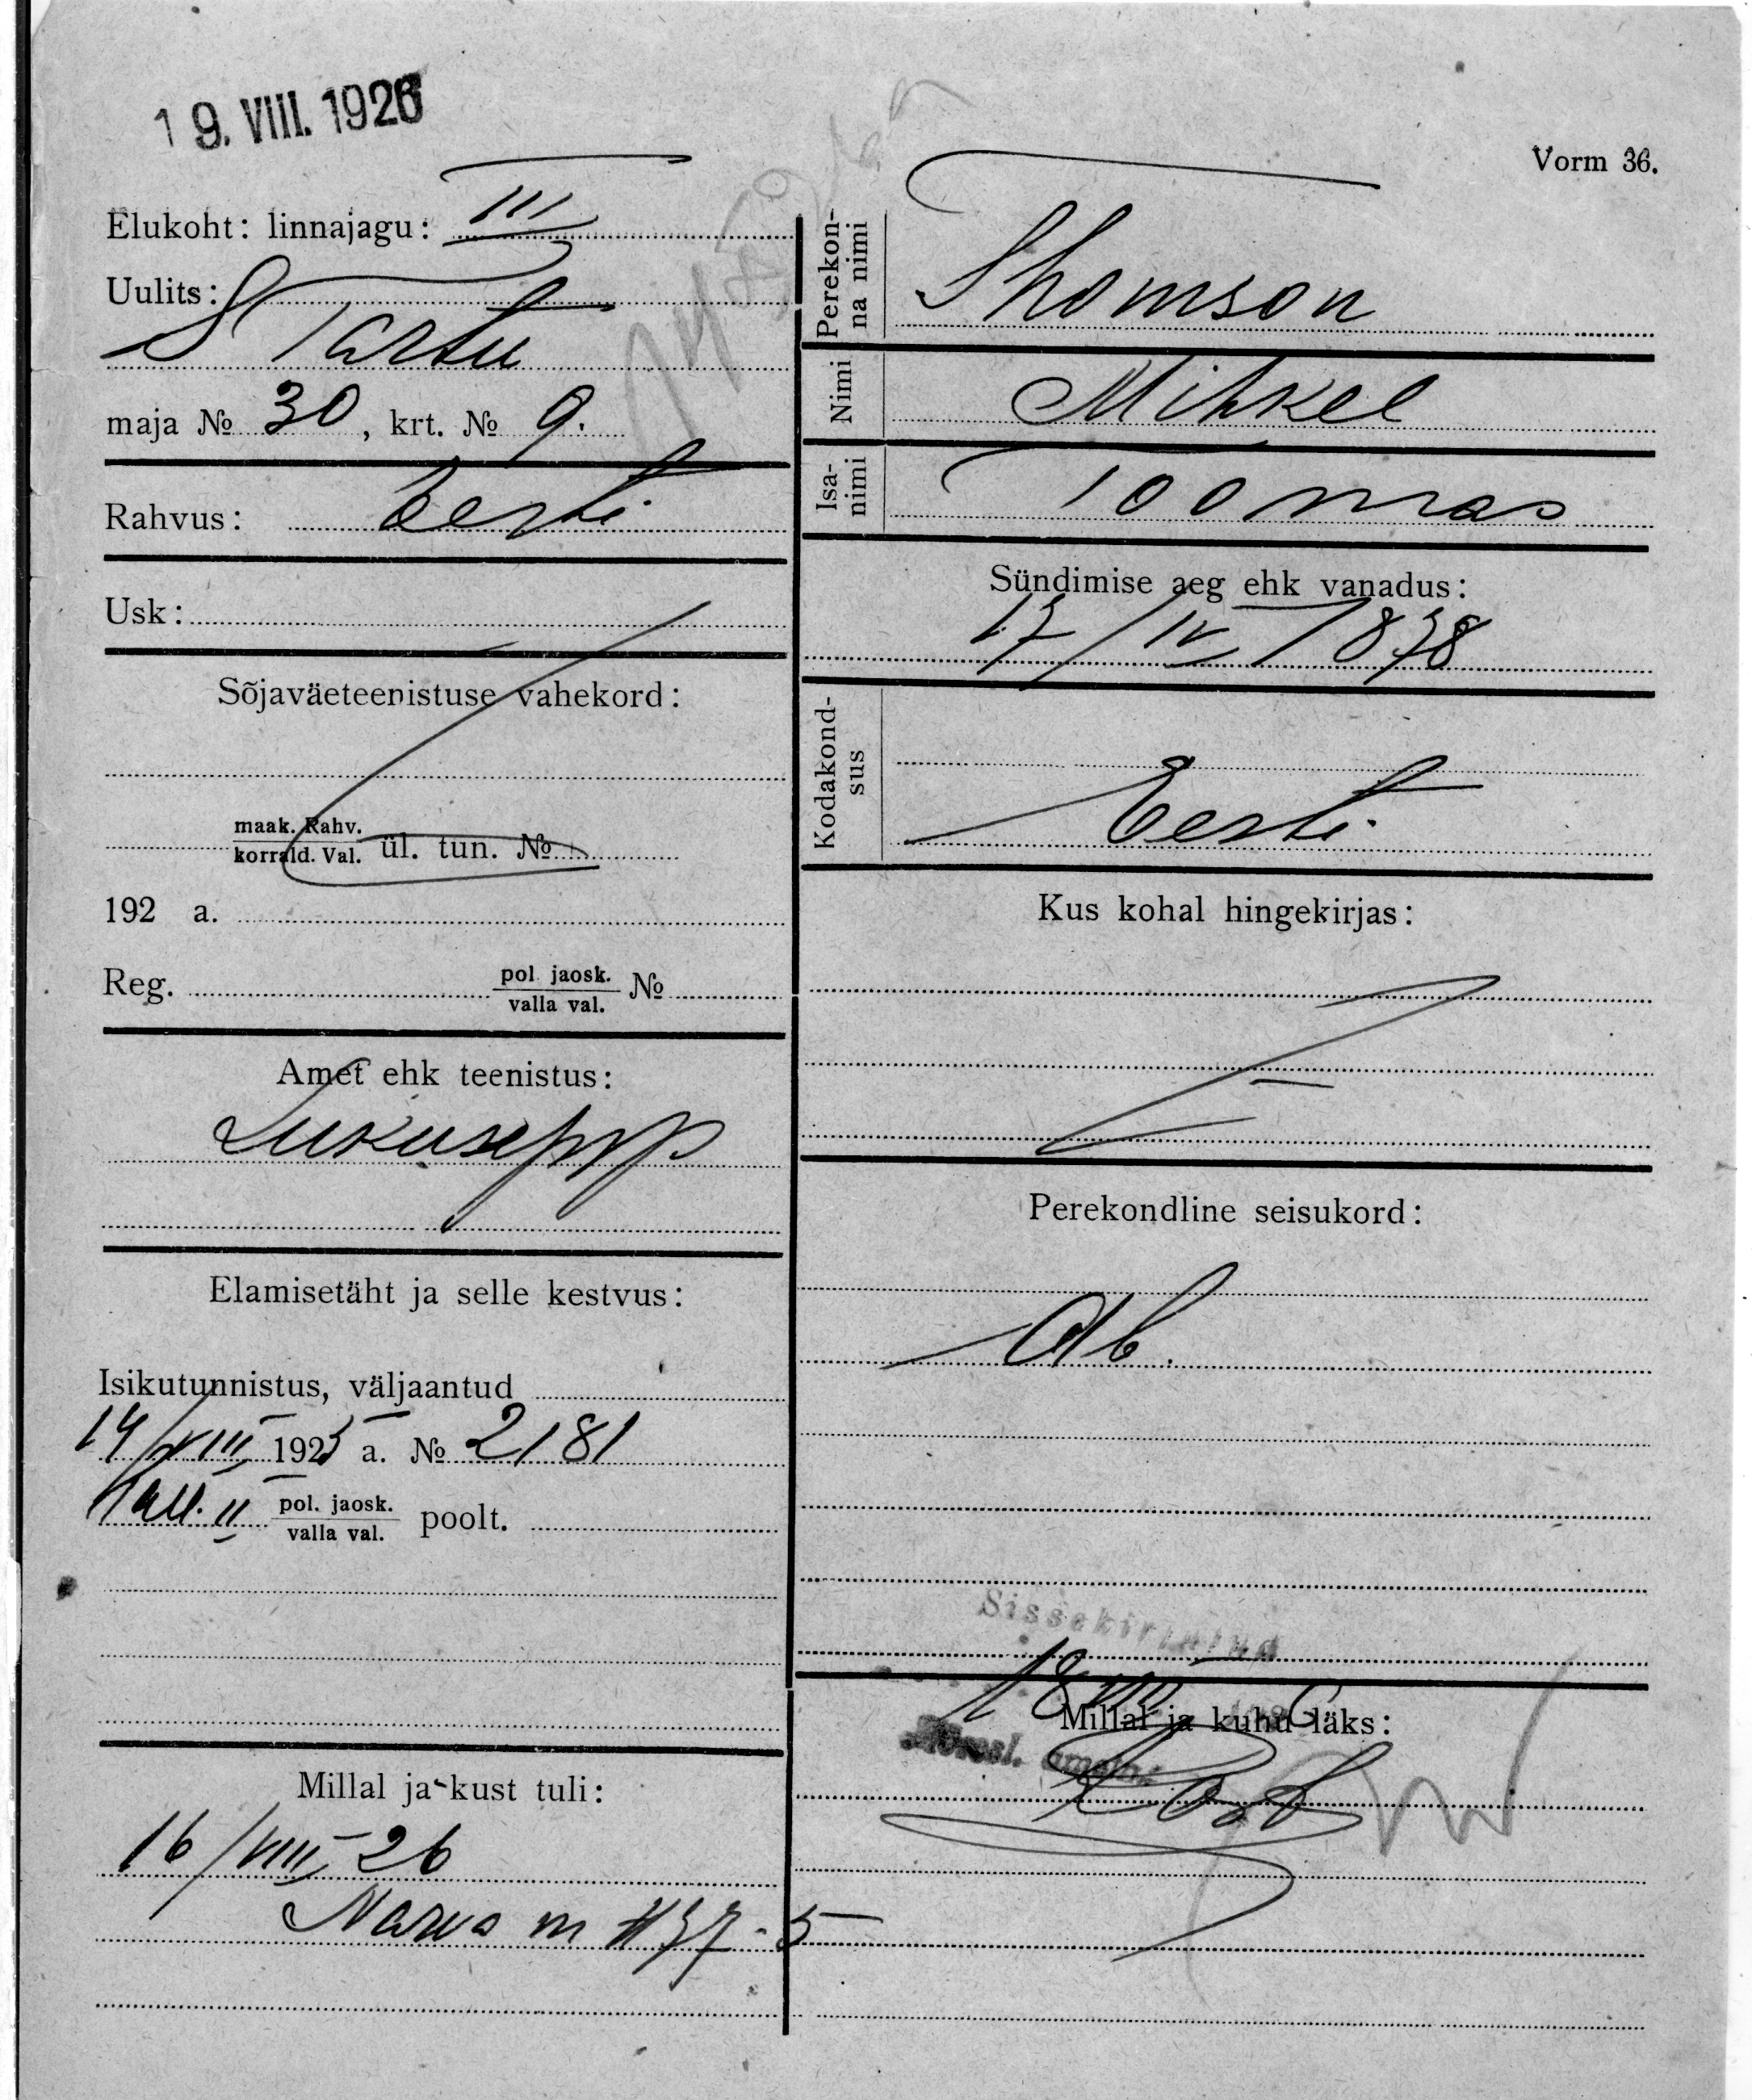 19. VIII. 1926
Vorm 36.
Elukoht: linnajagu: III
Uulits:
S Tartu
maja № 30, krt. № 9.
Rahvus: Eesti
Usk:
Sõjaväeteenistuse vahekord:
maak. Rahv.
korrald. Val. ül. tun. №
192 a.
Reg. pol jaosk.
valla val. №
Amet ehk teenistus:
Lukusepp
Elamisetäht ja selle kestvus:
Isikutunnistus, väljaantud
14/VIII 1925 a. № 2181
Tall. II pol. jaosk.
valla val. poolt.
Millal ja kust tuli:
16/VIII 26
Narva m № 37-5
Perekon-
na nimi
Thomson
Nimi
Mihkel
Isa-
nimi
Toomas
Sündimise aeg ehk vanadus:
17/IV 1878
Kodakond-
sus
Eesti
Kus kohal hingekirjas:
Perekondline seisukord:
Ab.
Sissekirjutud
18 VIII 6
Millal ja kuhu läks: